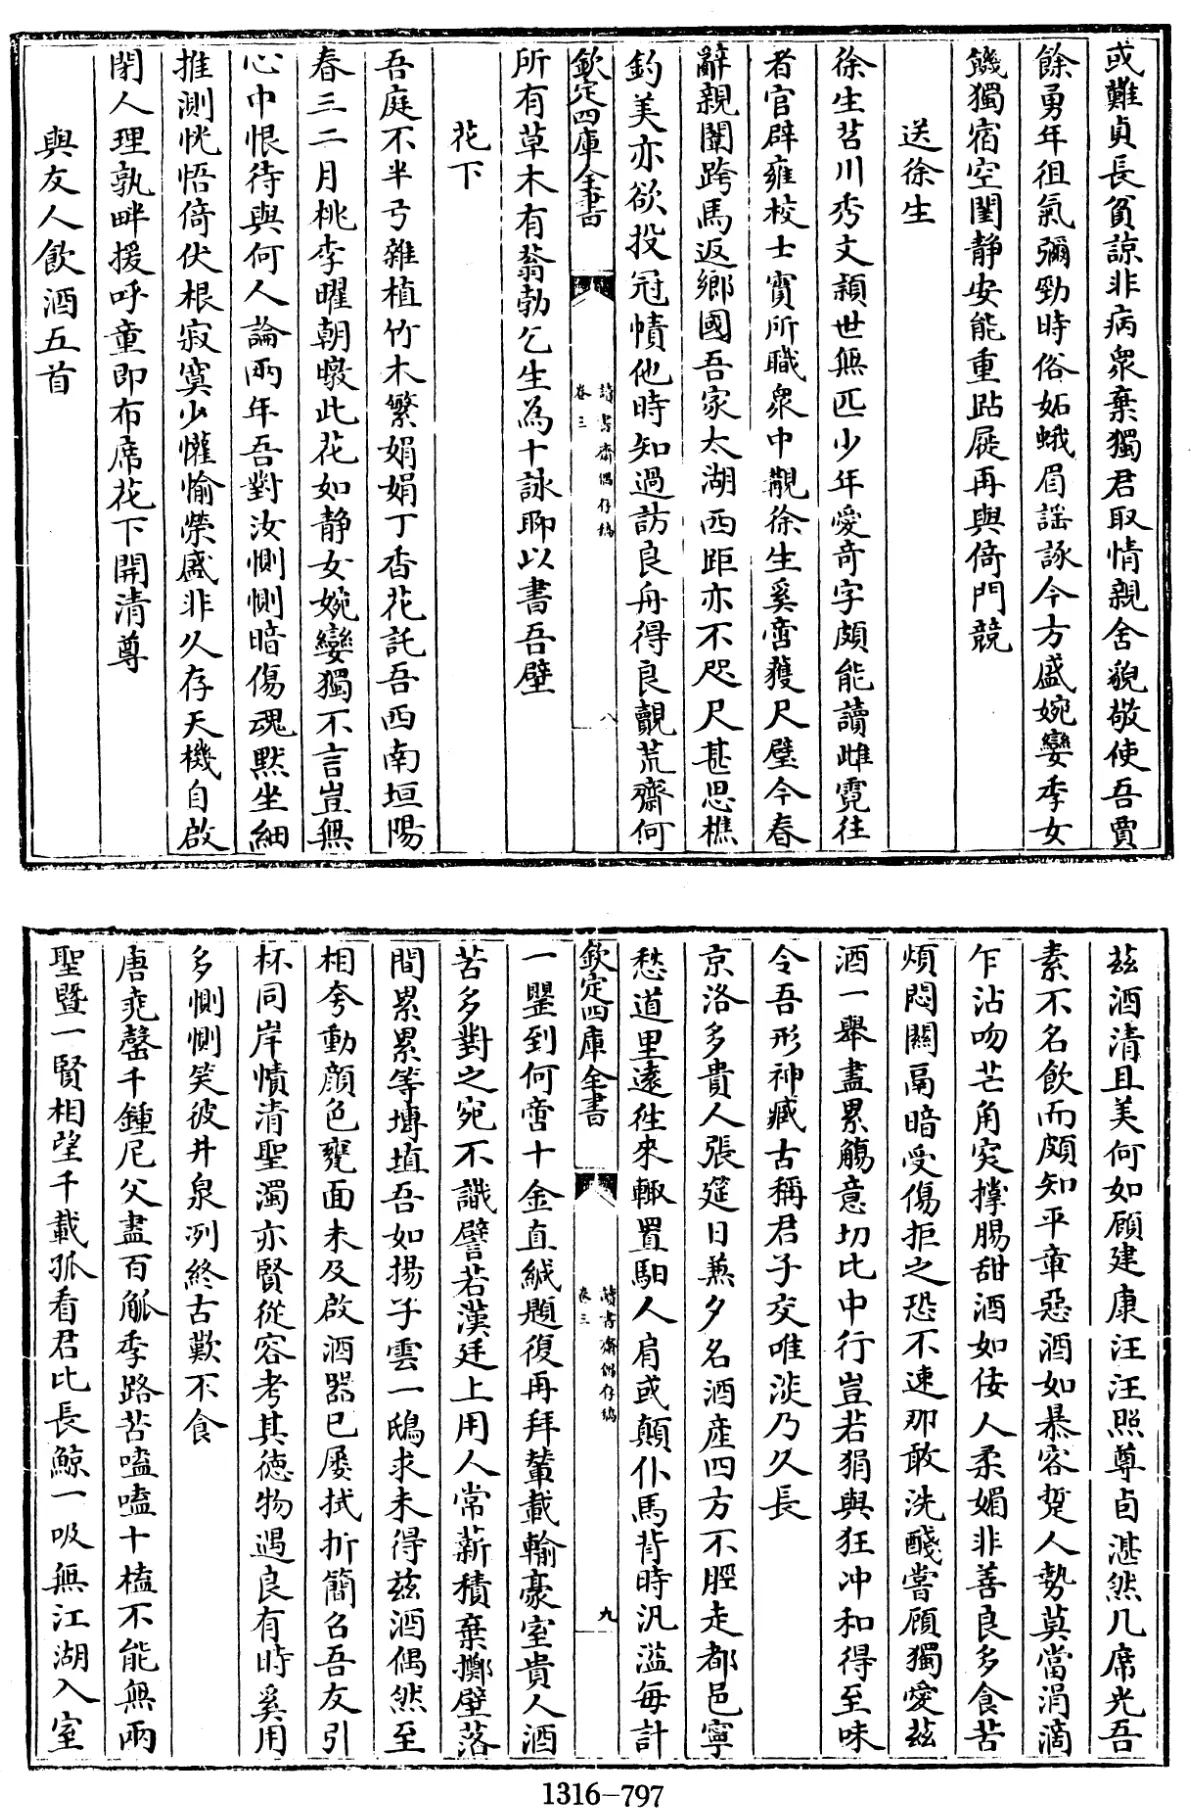 或難貞長貧諒非病衆棄獨君取情親舍貌敬使吾賈
餘勇年徂氣彌勁時俗妬蛾眉謡諑今方盛婉孌季女
饑獨宿空閨静安能重跕屣再與倚門競
送徐生
徐生苕川秀文頴世無匹少年愛奇字頗能讀雌霓往
者官辟雍校士實所職衆中覩徐生奚啻獲尺璧今春
辭親闈跨馬返鄉國吾家太湖西距亦不咫尺甚思樵
釣美亦欲投冠幘他時知過訪良舟得良覿荒齋何
欽定四庫全書
讀書齋偶存稿
卷三
八
所有草木有蓊勃乞生為十詠聊以書吾壁
花下
吾庭不半弓雜植竹木繁娟娟丁香花託吾西南垣陽
春三二月桃李曜朝暾此花如静女婉孌獨不言豈無
心中恨待與何人論兩年吾對汝惻惻暗傷魂黙坐細
推測恍悟倚伏根寂寞少懽愉榮盛非久存天機自啟
閉人理孰畔援呼童即布席花下開清尊
與友人飲酒五首
兹酒清且美何如顧建康汪汪照尊卣湛然几席光吾
素不名飲而頗知平章惡酒如暴客虿人勢莫當涓滴
乍沾吻芒角突撑腸甜酒如佞人柔媚非善良多食苦
煩悶關鬲暗受傷拒之恐不速那敢洗醆嘗顧獨愛兹
酒一舉盡累觴意切比中行豈若狷與狂冲和得至味
令吾形神臧古稱君子交唯淡乃久長
京洛多貴人張筵日兼夕名酒産四方不脛走都邑寧
愁道里遠徃來輙置馹人肩或顛仆馬背時汎溢毎計
欽定四庫全書
讀書齋偶存稿
卷三
九
一罌到何啻十金直緘題復再拜輦載輸豪室貴人酒
苦多對之宛不識譬若漢廷上用人常薪積棄擲壁落
間累累等塼埴吾如揚子雲一鴟求未得兹酒偶然至
相夸動顔色甕面未及啟酒器已屢拭折簡召吾友引
杯同岸幘清聖濁亦賢從容考其德物遇良有時奚用
多惻惻笑彼井泉冽終古歎不食
唐堯罄千鍾尼父盡百觚季路苦嗑嗑十榼不能無兩
聖暨一賢相望千載孤看君比長鯨一吸無江湖入室
1316-797